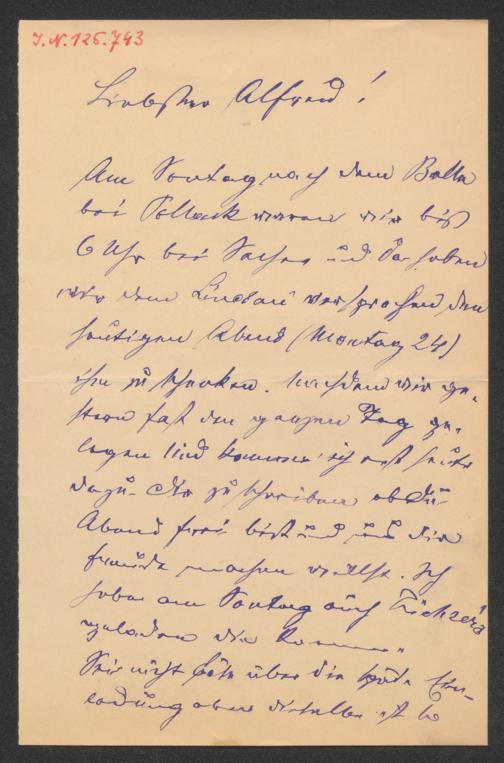 I.N. 125.743
Liebster Alfred!
Am Sontag nach dem Balle
bei Pollack waren wir bis
6 Uhr bei Sacher und da haben
wir dem Lindau versprochen den
heutigen Abend (Montag 24)
ihm zu schenken. Nachdem wir ge-
stern fast den ganzen Tag ge-
legen sind komme ich erst heute
dazu Dir zu schreiben ob Du
Abend frei bist und uns die
Freude machen willst. Ich
habe am Sontag auch
geladen die kommen
Sei nicht böse über die späte Ein-
ladung aber dieselbe ist so